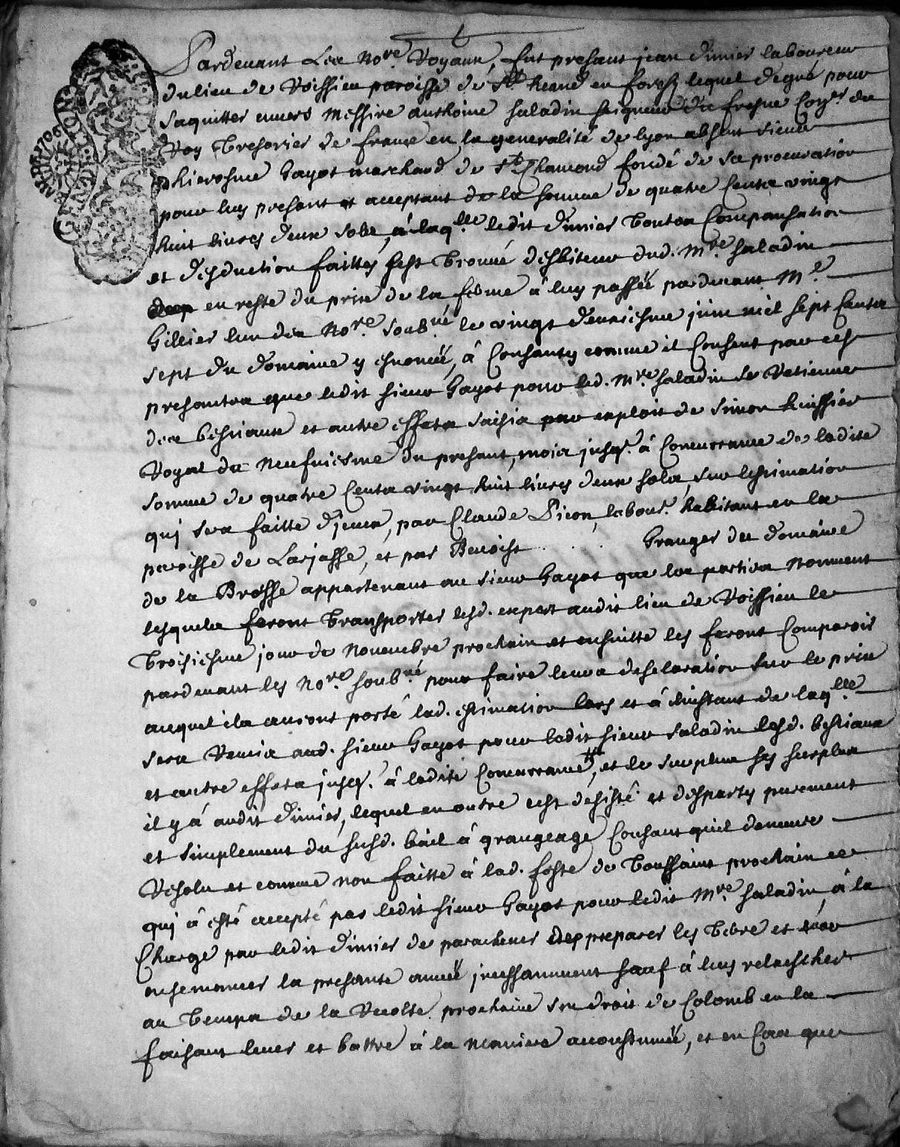 Pardevant Les No.re Royaux, fut present jean dimier laboureur
du lieu de Voissieu paroisse de St. heand en forest lequel degré pour
saquitter envers Messire anthoine saladin seigneur du fresne Con.er du
Roy Tresorier de france en la generalité de lyon absent sieur
hierosme Gayot marchand de St. Chamond fondé de sa procuration
pour luy present et acceptant de la somme de quatre Centz vingt
huit livres deux solz, à laq.lle ledit dimier Toutes Compansation
et desduction faittes sest Trouvé desbiteur dud. M.re saladin
en reste du prix de la ferme à luy passée pardevant M.e
Gillier lun des No.re soub.né le vingt deuxiesme juin mil sept Centz
sept du domaine y enoncé, à Consanty comme il Consent par ces
presantes que ledit sieur Gayot pour led. M.re saladin se Retienne
des bestiaux et autre effetz saisis par exploit de simon huissier
Royal du Neufviesme du presant, mois jusq. à Concurrance de ladite
somme de quatre Centz vingt huit livres deux solz sur lestimation
qui sera faitte diceux, par Claude Picon, labour. habitant en la
paroisse de Larjasse, et par Benoist Granger du domaine
de la Brosse appartenant au sieur Gayot que les parties Nomment
lesquelz feront Transporter lesd. expert audit lieu de Voissieu le
Troisiesme jour de Novembre prochain et ensuitte les feront Comparoir
pardevant les No.re soub.né pour faire leurs desclaration sur le prix
auquel ilz auront porté lad. estimation lors et à linstant de laq.lle
sera Remis aud. sieur Gayot pour ledit sieur saladin lesd. bestiaux
et autre effetz jusq. à ladite Concurrance, et le surplus sy surplus
il y à audit dimier, lequel en outre cest desisté et desparty purement
et simplement du susd. bail à grangeage Consant quil demeure
Resolu et comme non faitte à lad. feste de Toussaint prochain ce
qui à esté accepté par ledit sieur Gayot pour ledit M.re saladin, à la
Charge par ledit dimier de parachever de preparer les Terre et les
ensemancer la presante année jncessamment sauf à luy relascher
au Temps de la Recolte prochaine son droit de Colomb en la
faisant lever et battre à la maniere accoustumée, et en Cas que